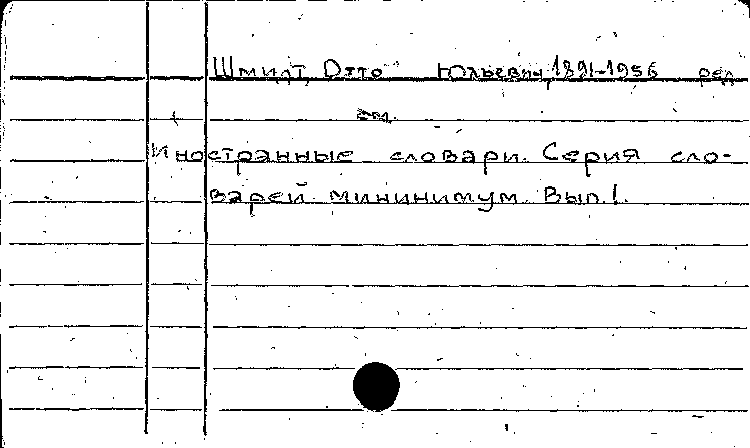 Шмидт, Отто Юльевич, 1891-1956 ред.
см.
Иностранные словари. Серия сло-
варей мининимум. Вып. 1.